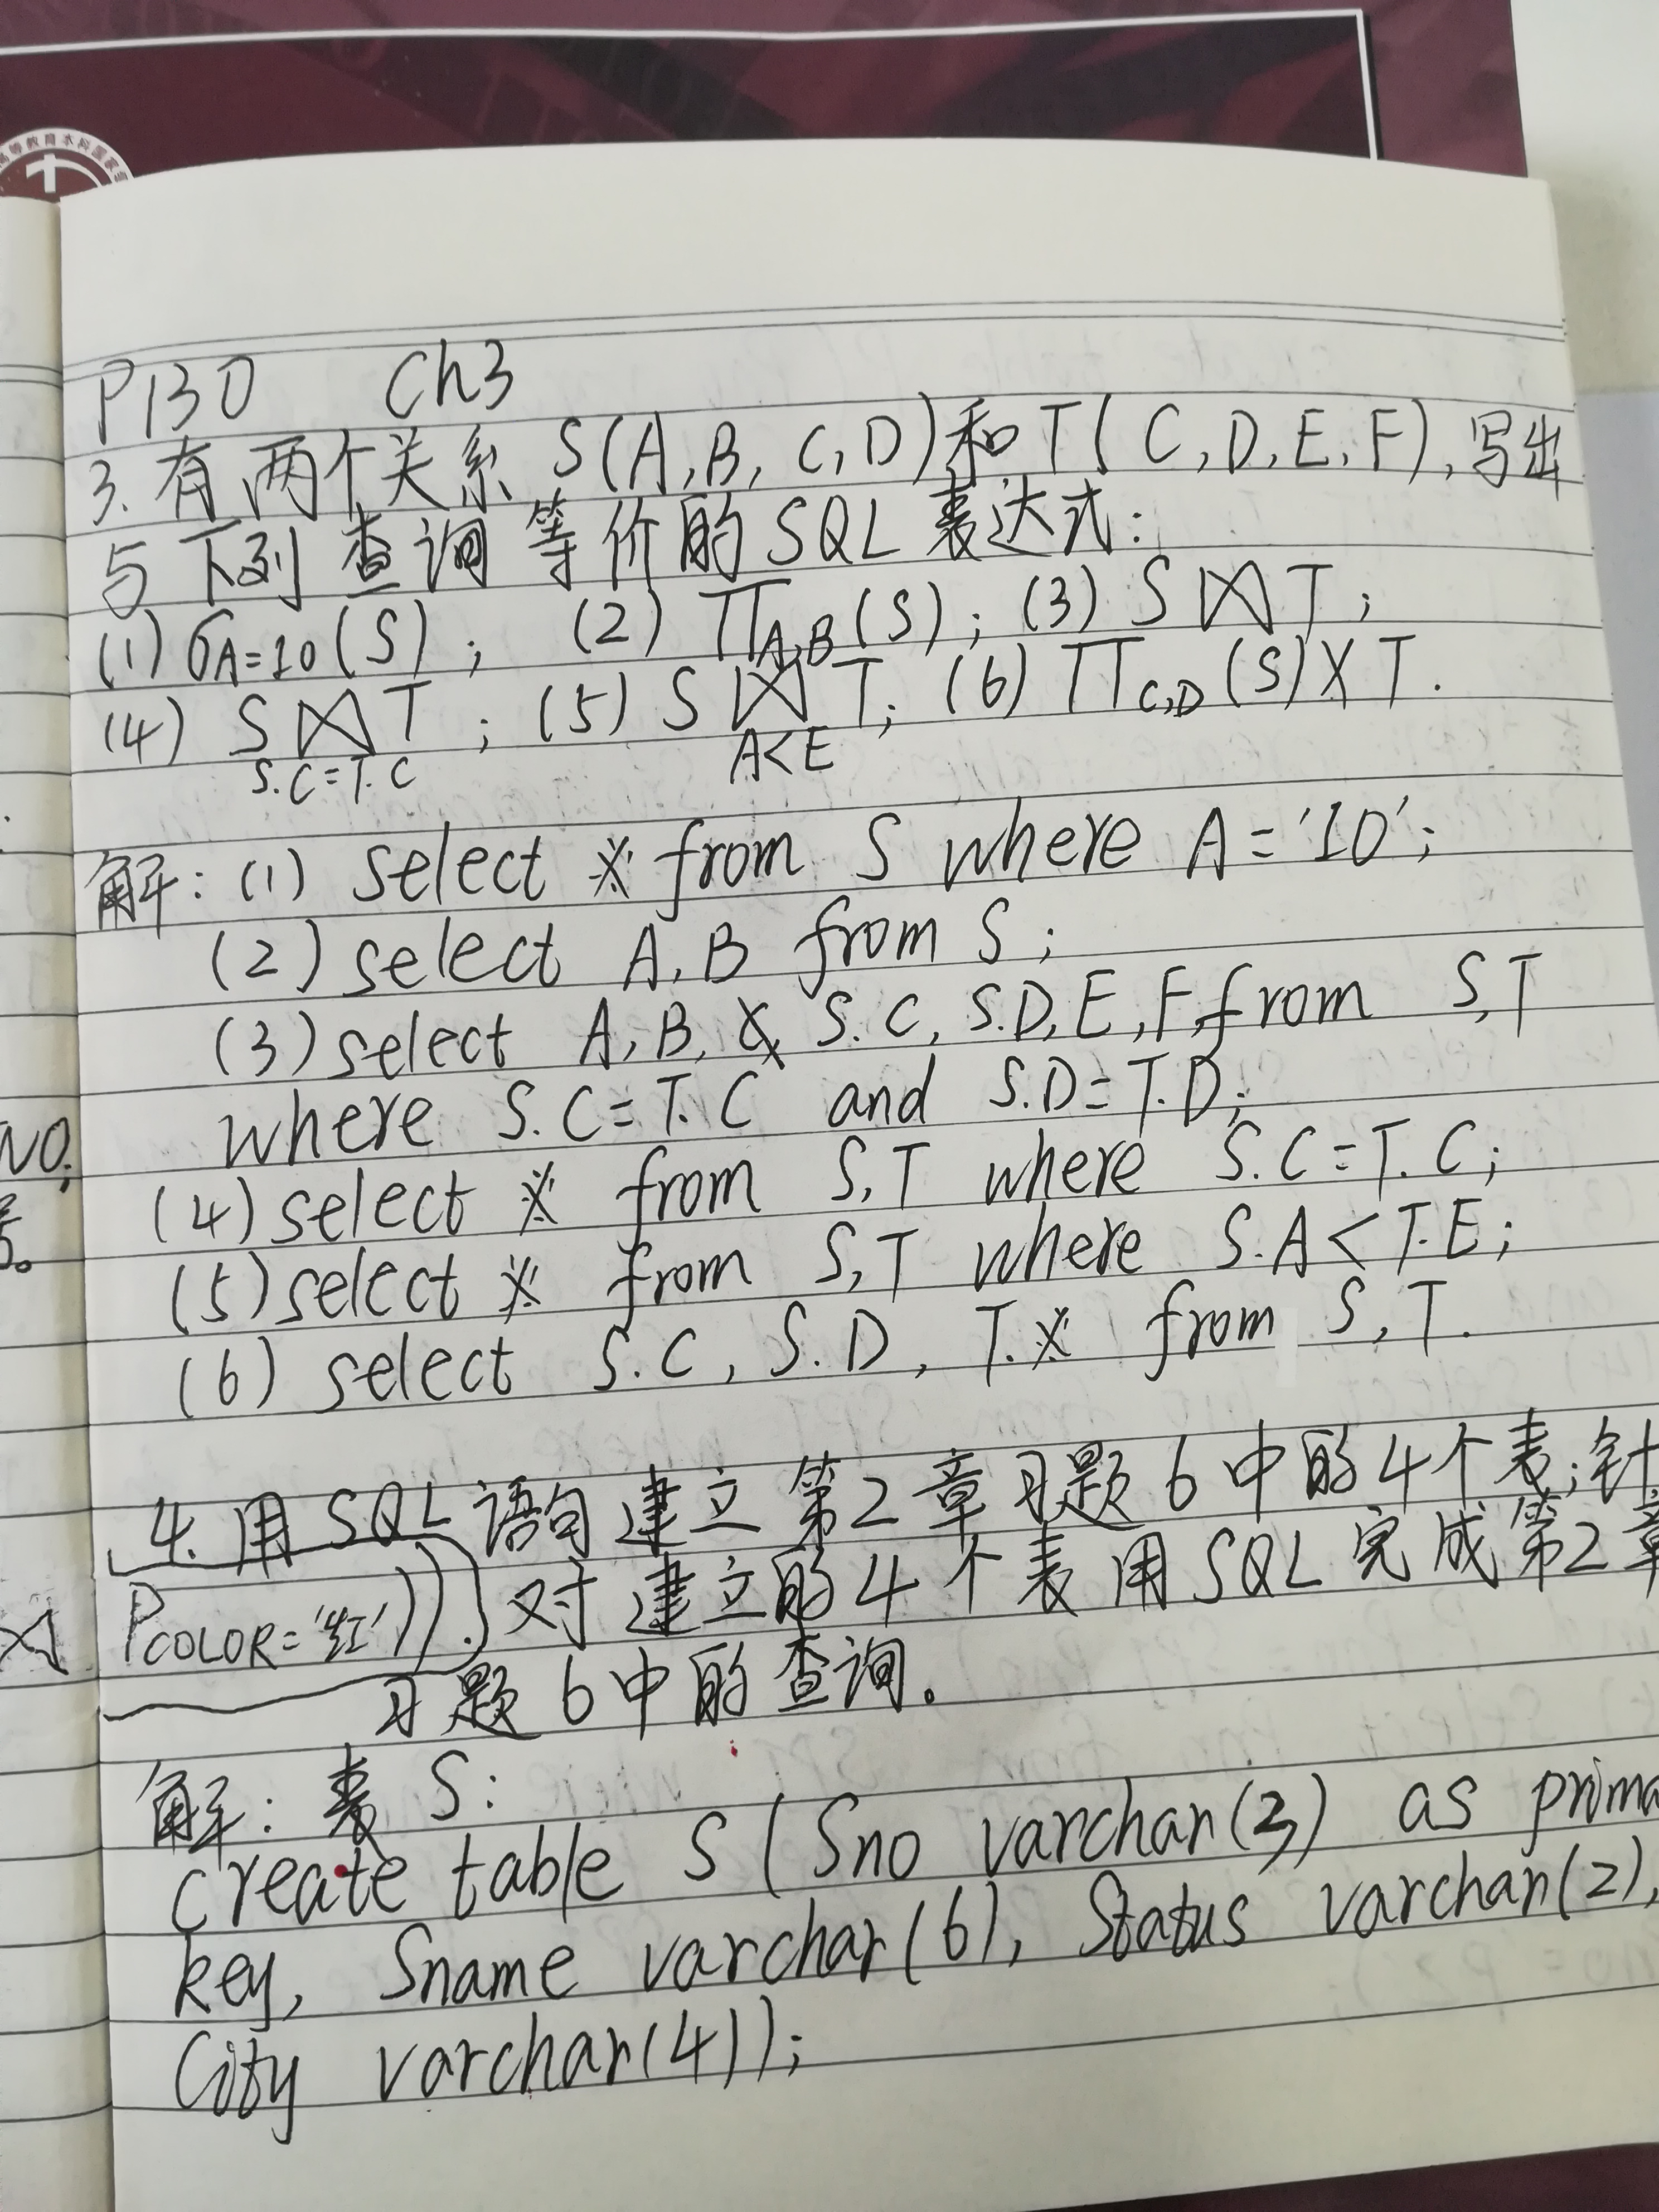 高等教育本科国家
P130 Ch3
3.有两个关系 S(A,B,C,D)和T(C,D,E,F),写出
与下列查询等价的SQL表达式:
(1) σA=10(S); (2) ΠA,B(S); (3) S⋈T;
(4) S⋈T ; (5) S ⋈ T; (6) ΠC,D(S)×T.
S.C=T.C A<E
解:(1) select * from S where A='10';
(2) select A,B from S;
(3) select A,B, S.C, S.D,E,F,from S,T
where S.C=T.C and S.D=T.D;
NO;
(4) select * from S,T where S.C=T.C;
(5) select * from S,T where S.A<T.E;
(6) select S.C, S.D, T.* from S,T.
4.用SQL语句建立第2章习题6中的4个表;针
PCOLOR='红'))). 对建立的4个表用SQL完成第2章
习题6中的查询。
解:表 S:
create table S (Sno varchar(3) as prima
key, Sname varchar(6), Status varchar(2),
City varchar(4));